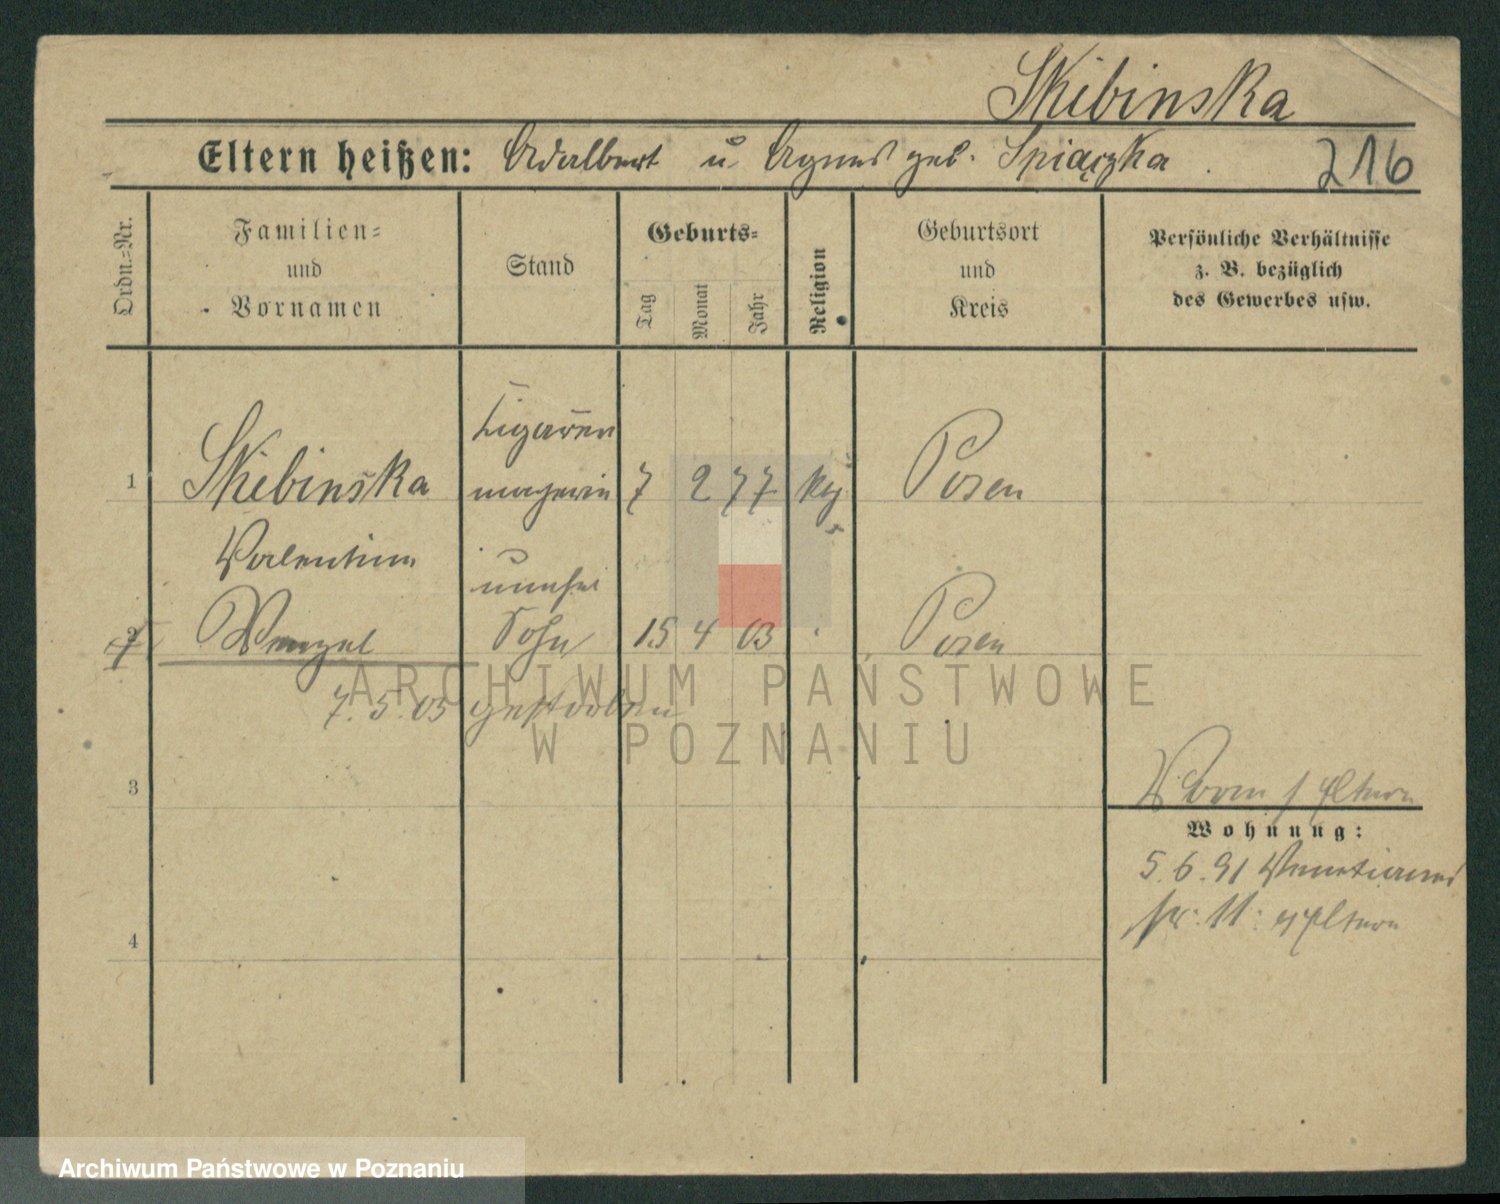 Skibinska
Eltern heißen: Adalbert u Agnes geb. Spiączka
216
Ordn.-Nr.
Familien-
und
Vornamen
Stand
Geburts-
Tag
Monat
Jahr
Religion
Geburtsort
und
Kreis
Persönliche Verhältnisse
z. B. bezüglich
des Gewerbes usw.
Cigarren
1 Skibinska 7 2 77 Posen
Valentina
unehel
2 Wenzel Sohn 15 4 03 Posen
7.5.05 gestorben
ARCHIWUM PAŃSTWOWE
W POZNANIU
3
Eltern
Wohnung:
5.6.91 Venetianer
str. 11. Eltern
4
Archiwum Państwowe w Poznaniu